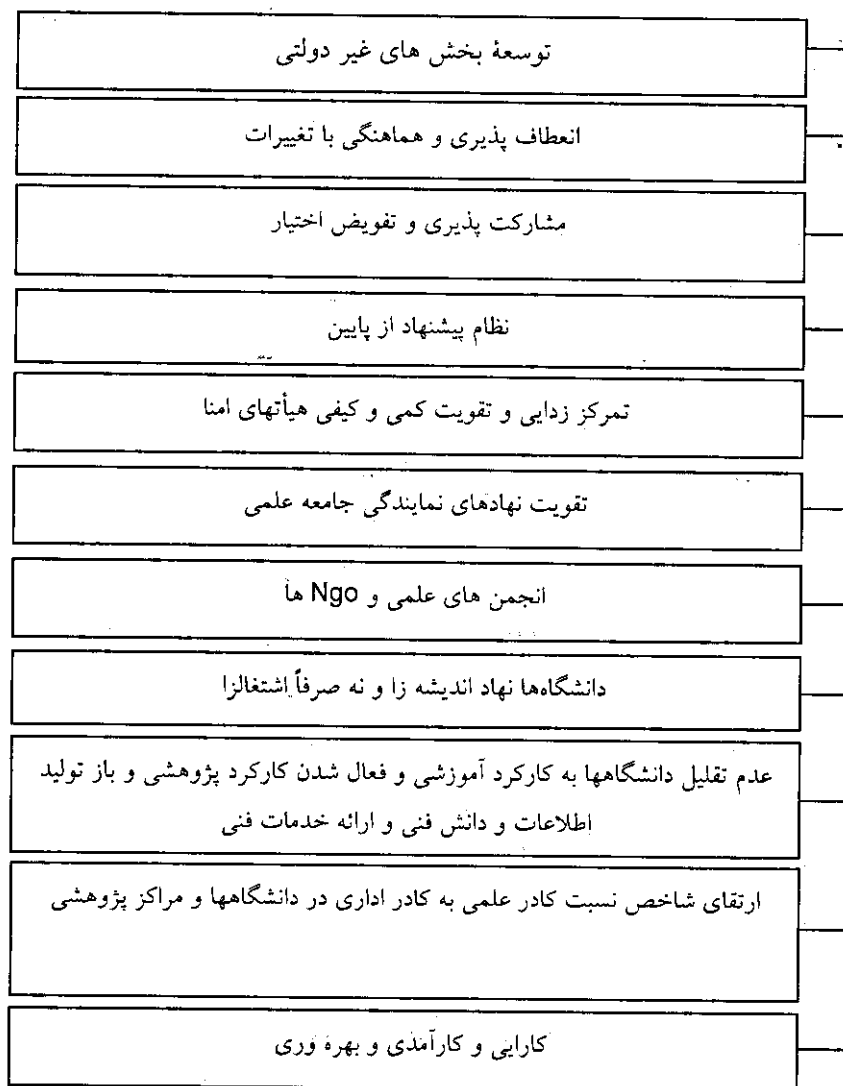 توسعۀ بخش های غیر دولتی
انعطاف پذیری و هماهنگی با تغییرات
مشارکت پذیری و تفویض اختیار
نظام پیشنهاد از پایین
تمرکز زدایی و تقویت کمی و کیفی هیأتهای امنا
تقویت نهادهای نمایندگی جامعه علمی
انجمن های علمی و Ngo ها
دانشگاه‌ها نهاد اندیشه زا و نه صرفاً اشتغالزا
عدم تقلیل دانشگاهها به کارکرد آموزشی و فعال شدن کارکرد پژوهشی و باز تولید
اطلاعات و دانش فنی و ارائه خدمات فنی
ارتقای شاخص نسبت کادر علمی به کادر اداری در دانشگاهها و مراکز پژوهشی
کارایی و کارآمدی و بهره وری